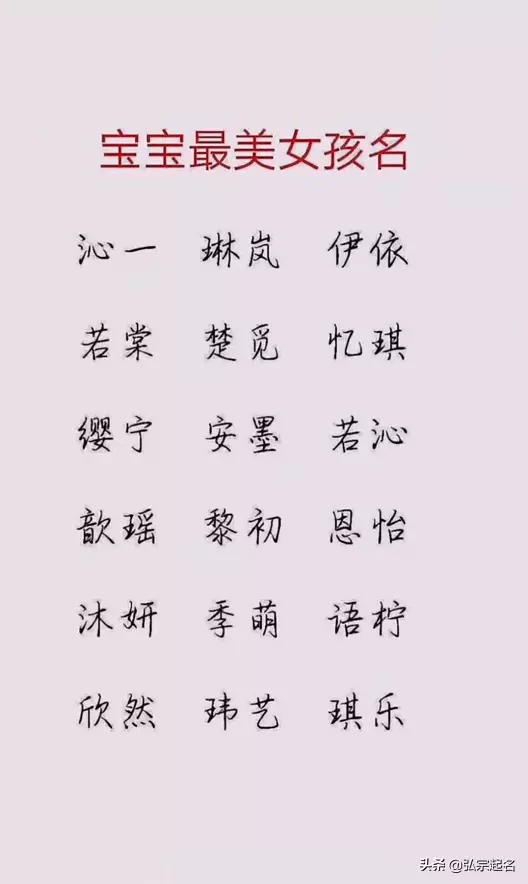 宝宝最美女孩名
沁一 琳岚 伊依
若棠 楚觅 忆琪
缨宁 安墨 若沁
歆瑶 黎初 恩怡
沐妍 季萌 语柠
欣然 玮艺 琪乐
头条 @弘宗起名